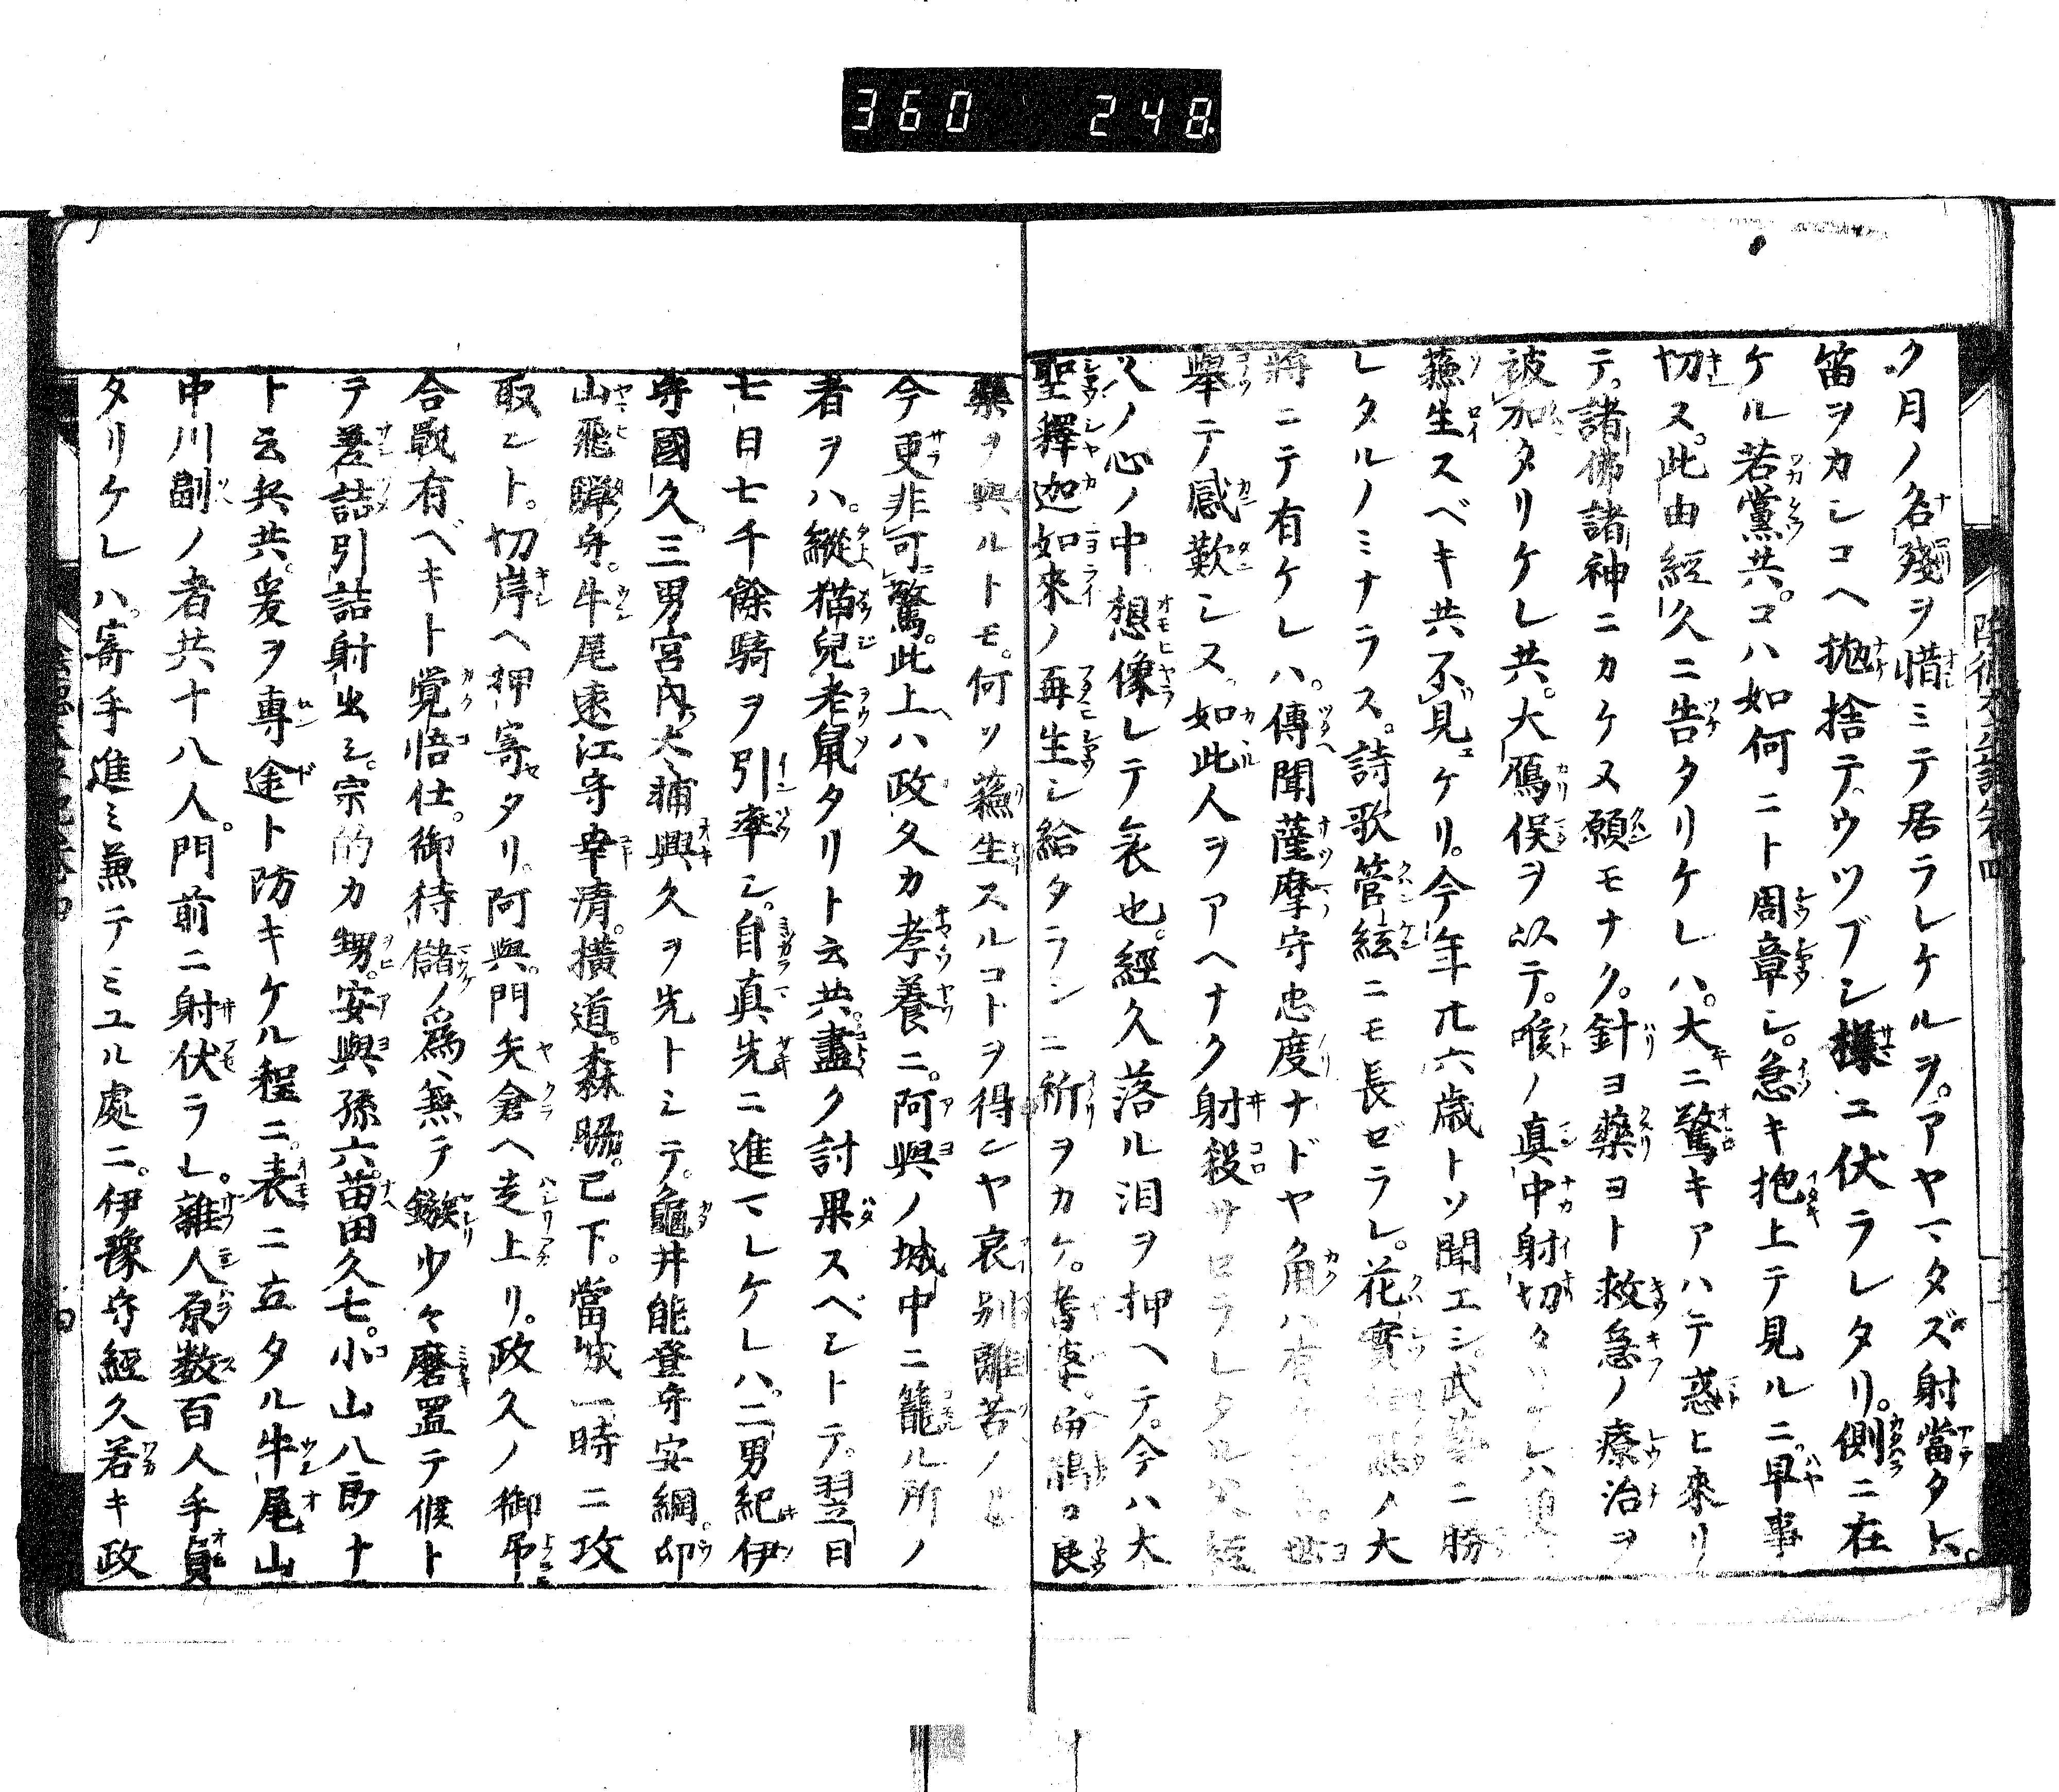 360 248
ク月ノ名殘ヲ惜ミテ居ラレケルヲ。アヤマタズ射當タレハ。
笛ヲカシコヘ抛捨テウツブシ樣ニ伏ラレタリ。側ニ在
ケル若黨共。コハ如何ニト周章シ。急キ抱上テ見ルニ。早事
切ヌ。此由經久ニ告タリケレハ。大ニ驚キアハテ惑ヒ來リ
テ。諸佛諸神ニカケヌ願モナク。針ヨ藥ヨト救急ノ療治ヲ
被加タリケレ共。大鴈俣ヲ以テ。喉ノ真中射切タリケレハ更
蘓生スベキ共不見ケリ。今年廿六歳トソ聞エシ。武藝ニ勝
レタルノミナラス。詩歌管絃ニモ長ゼラレ。花實ノ大
將ニテ有ケレハ。傳聞薩摩守忠度ナドヤ角ハ有世
舉テ感歎シヌ。如此人ヲアヘナク射殺サセラレタル父經
久ノ心ノ中想像レテ哀也。經久落ル泪ヲ押ヘテ。今ハ大
聖釋迦如來ノ再生シ給タランニ祈ヲカケ。耆婆扁鵲カ良
藥ヲ與ルトモ。何ソ蘓生スルコトヲ得ンヤ哀別離苦ノ
今更非可驚。此上ハ政久カ孝養ニ。阿與ノ城中ニ籠ル所ノ
者ヲハ。縱猫兒老鼠タリト云共。盡ク討果スベシトテ。翌日
七日七千餘騎ヲ引率シ。自真先ニ進マレケレハ。二男紀伊
守國久。三男宮内大輔興久ヲ先トシテ。龜井能登守安綱卯
山飛驒守。牛尾遠江守幸清。横道。森脇。已下。當城一時ニ攻
取ント。切岸ヘ押寄タリ。阿與。門矢倉ヘ走上リ。政久ノ御弔
合戰有ベキト覚悟仕。御待儲ノ爲、無テ鏃少々磨置テ候ト
ヲ差詰引詰射出シ。宗的カ甥。安與孫六。苗田久七。小山八郎ナ
ト云兵共。爰ヲ專途ト防キケル程ニ。表ニ立タル牛尾山
中川副ノ者共十八人。門前ニ射伏ラレ。雜人原数百人手負
タリケレハ。寄手進ミ兼テミユル處ニ。伊豫守經久若キ政